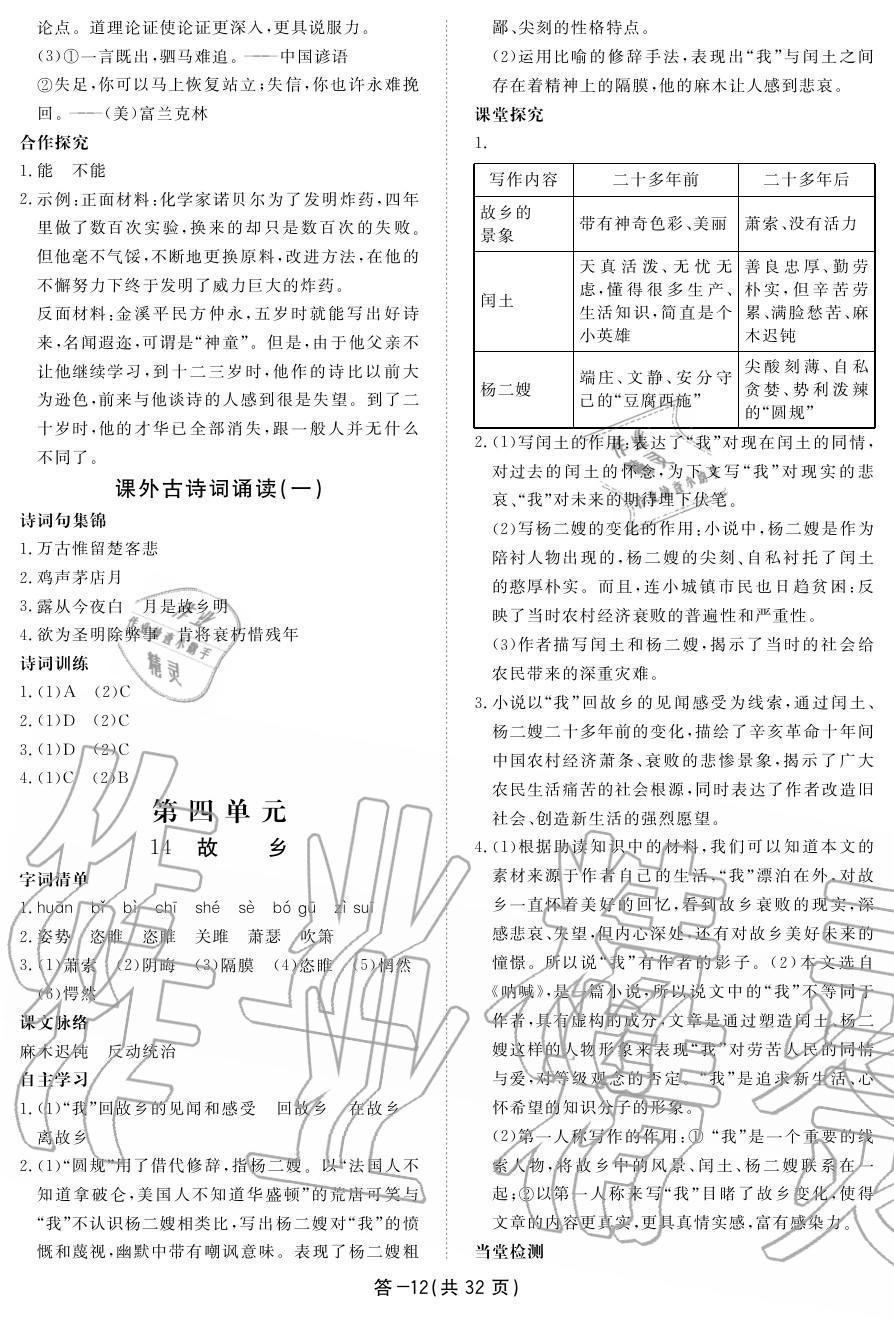 论点。道理论证使论证更深入,更具说服力。
(3)①一言既出,驷马难追。——中国谚语
②失足,你可以马上恢复站立;失信,你也许永难挽
回。——(美)富兰克林
合作探究
1.能 不能
2.示例:正面材料:化学家诺贝尔为了发明炸药,四年
里做了数百次实验,换来的却只是数百次的失败。
但他毫不气馁,不断地更换原料,改进方法,在他的
不懈努力下终于发明了威力巨大的炸药。
反面材料:金溪平民方仲永,五岁时就能写出好诗
来,名闻遐迩,可谓是“神童”。但是,由于他父亲不
让他继续学习,到十二三岁时,他作的诗比以前大
为逊色,前来与他谈诗的人感到很是失望。到了二
十岁时,他的才华已全部消失,跟一般人并无什么
不同了。
课外古诗词诵读(一)
诗词句集锦
1.万古惟留楚客悲
2.鸡声茅店月
3.露从今夜白 月是故乡明
4.欲为圣明除弊事 肯将衰朽惜残年
诗词训练
1.(1)A (2)C
2.(1)D (2)C
3.(1)D (2)C
4.(1)C (2)B
第四单元
14 故 乡
字词清单
1.huān bǐ bì chī shé sè bó gū zì suī
2.姿势 恣睢 恣睢 关雎 萧瑟 吹箫
3.(1)萧索 (2)阴晦 (3)隔膜 (4)恣睢 (5)惘然
(6)愕然
课文脉络
麻木迟钝 反动统治
自主学习
1.(1)“我”回故乡的见闻和感受 回故乡 在故乡
离故乡
2.(1)“圆规”用了借代修辞,指杨二嫂。以“法国人不
知道拿破仑,美国人不知道华盛顿”的荒唐可笑与
“我”不认识杨二嫂相类比,写出杨二嫂对“我”的愤
慨和蔑视,幽默中带有嘲讽意味。表现了杨二嫂粗
鄙、尖刻的性格特点。
(2)运用比喻的修辞手法,表现出“我”与闰土之间
存在着精神上的隔膜,他的麻木让人感到悲哀。
课堂探究
1.
写作内容 二十多年前 二十多年后
故乡的
景象 带有神奇色彩、美丽 萧索、没有活力
闰土 天真活泼、无忧无
虑,懂得很多生产、
生活知识,简直是个
小英雄 善良忠厚、勤劳
朴实,但辛苦劳
累、满脸愁苦、麻
木迟钝
杨二嫂 端庄、文静、安分守
己的“豆腐西施” 尖酸刻薄、自私
贪婪、势利泼辣
的“圆规”
2.(1)写闰土的作用:表达了“我”对现在闰土的同情,
对过去的闰土的怀念,为下文写“我”对现实的悲
哀、“我”对未来的期待埋下伏笔。
(2)写杨二嫂的变化的作用:小说中,杨二嫂是作为
陪衬人物出现的,杨二嫂的尖刻、自私衬托了闰土
的憨厚朴实。而且,连小城镇市民也日趋贫困;反
映了当时农村经济衰败的普遍性和严重性。
(3)作者描写闰土和杨二嫂,揭示了当时的社会给
农民带来的深重灾难。
3.小说以“我”回故乡的见闻感受为线索,通过闰土、
杨二嫂二十多年前的变化,描绘了辛亥革命十年间
中国农村经济萧条、衰败的悲惨景象,揭示了广大
农民生活痛苦的社会根源,同时表达了作者改造旧
社会、创造新生活的强烈愿望。
4.(1)根据助读知识中的材料,我们可以知道本文的
素材来源于作者自己的生活,“我”漂泊在外,对故
乡一直怀着美好的回忆,看到故乡衰败的现实,深
感悲哀、失望,但内心深处,还有对故乡美好未来的
憧憬。所以说“我”有作者的影子。(2)本文选自
《呐喊》,是一篇小说,所以说文中的“我”不等同于
作者,具有虚构的成分,文章是通过塑造闰土、杨二
嫂这样的人物形象来表现“我”对劳苦人民的同情
与爱,对等级观念的否定。“我”是追求新生活、心
怀希望的知识分子的形象。
(2)第一人称写作的作用:①“我”是一个重要的线
索人物,将故乡中的风景、闰土、杨二嫂联系在一
起;②以第一人称来写“我”目睹了故乡变化,使得
文章的内容更真实,更具真情实感,富有感染力。
当堂检测
答-12(共 32 页)